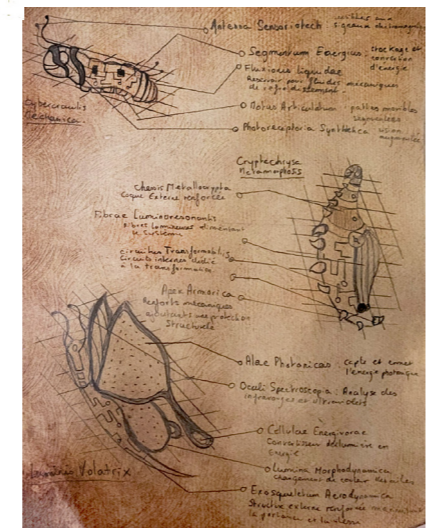 Antenna Sensoriotech
Segmentum Energius : stockage et
d'énergie
Fluxions Liquidae
Réservoir pour fluides mécaniques
de refroidissement
Motus Articulatum : pattes
Photoreceptoria Synthetica vision
Mechanica
Cryptechryse
Metamorphosis
Chassis Metallocrypta
coque externe renforcée
Fibrae Luminoresonantis
fibres lumineuses
le système
Circuitus Transformatilis
circuits internes dédié
à la transformation
Apex Armorica
Renforts mécaniques
ajoutant une protection
structurelle
Alae Photonicas : capte et émet
l'énergie photonique
Oculi Spectroscopia : Analyse des
infrarouges et ultraviolets
Cellulae Energivorae
Convertisseur de lumière en
énergie
Lumina Morphodynamica
changement de couleur
Volatrix
Exosquelettum Aerodynamica
Structure externe renforcée
la portance et la vitesse